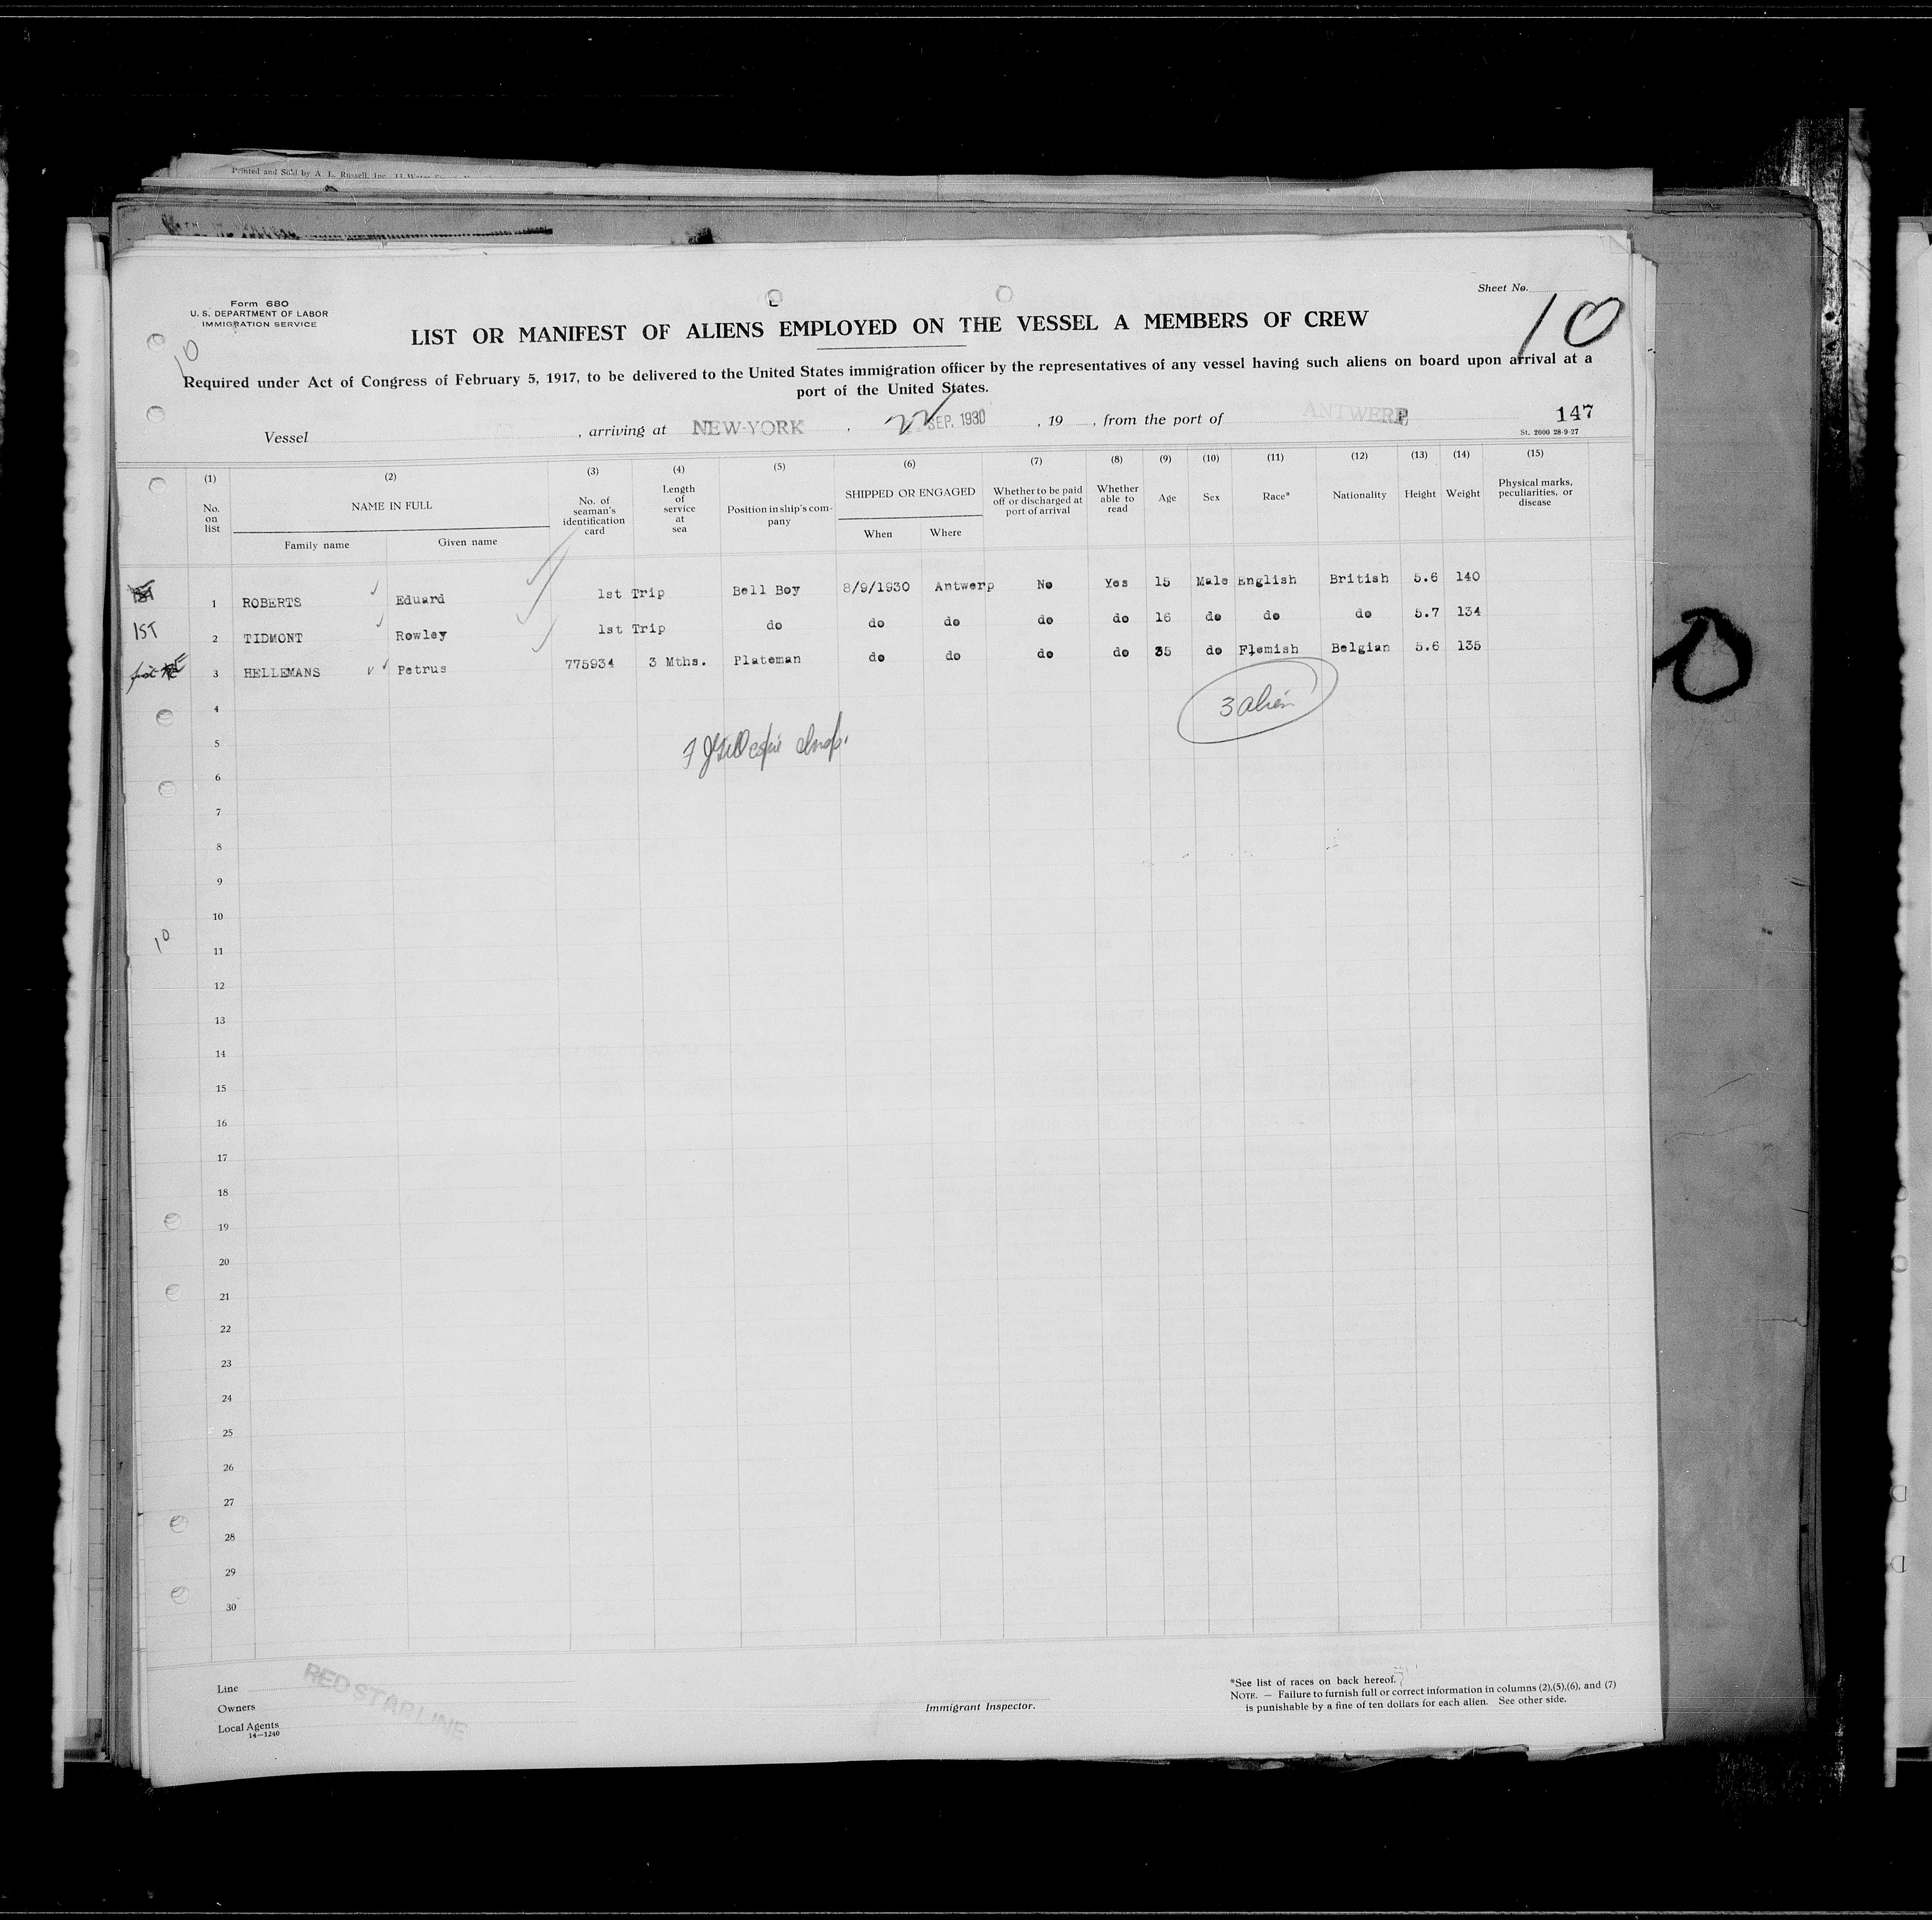 Printed and Sold by A. L. Russell, Inc.
Form 680
U. S. DEPARTMENT OF LABOR
IMMIGRATION SERVICE
Sheet No. 10
10
LIST OR MANIFEST OF ALIENS EMPLOYED ON THE VESSEL A MEMBERS OF CREW
Required under Act of Congress of February 5, 1917, to be delivered to the United States immigration officer by the representatives of any vessel having such aliens on board upon arrival at a
port of the United States.
Vessel , arriving at NEW-YORK , 22 SEP. 1930 , 19 , from the port of ANTWERP 147
St. 2000 28-9-27
(1) (2) (3) (4) (5) (6) (7) (8) (9) (10) (11) (12) (13) (14) (15)
No. on list NAME IN FULL Family name Given name No. of seaman's identification card Length of service at sea Position in ship's company SHIPPED OR ENGAGED When Where Whether to be paid off or discharged at port of arrival Whether able to read Age Sex Race* Nationality Height Weight Physical marks, peculiarities, or disease
1 ROBERTS Eduard 1st Trip Bell Boy 8/9/1930 Antwerp No Yes 15 Male English British 5.6 140
1ST 2 TIDMONT Rowley 1st Trip do do do do do 16 do do do 5.7 134
3 HELLEMANS Petrus 775934 3 Mths. Plateman do do do do 35 do Flemish Belgian 5.6 135
4
3 alien
5
6
7
8
9
10
10
11
12
13
14
15
16
17
18
19
20
21
22
23
24
25
26
27
28
29
30
Line RED STAR LINE
Owners
Local Agents
14—1240
Immigrant Inspector.
*See list of races on back hereof.
NOTE. — Failure to furnish full or correct information in columns (2),(5),(6), and (7)
is punishable by a fine of ten dollars for each alien. See other side.